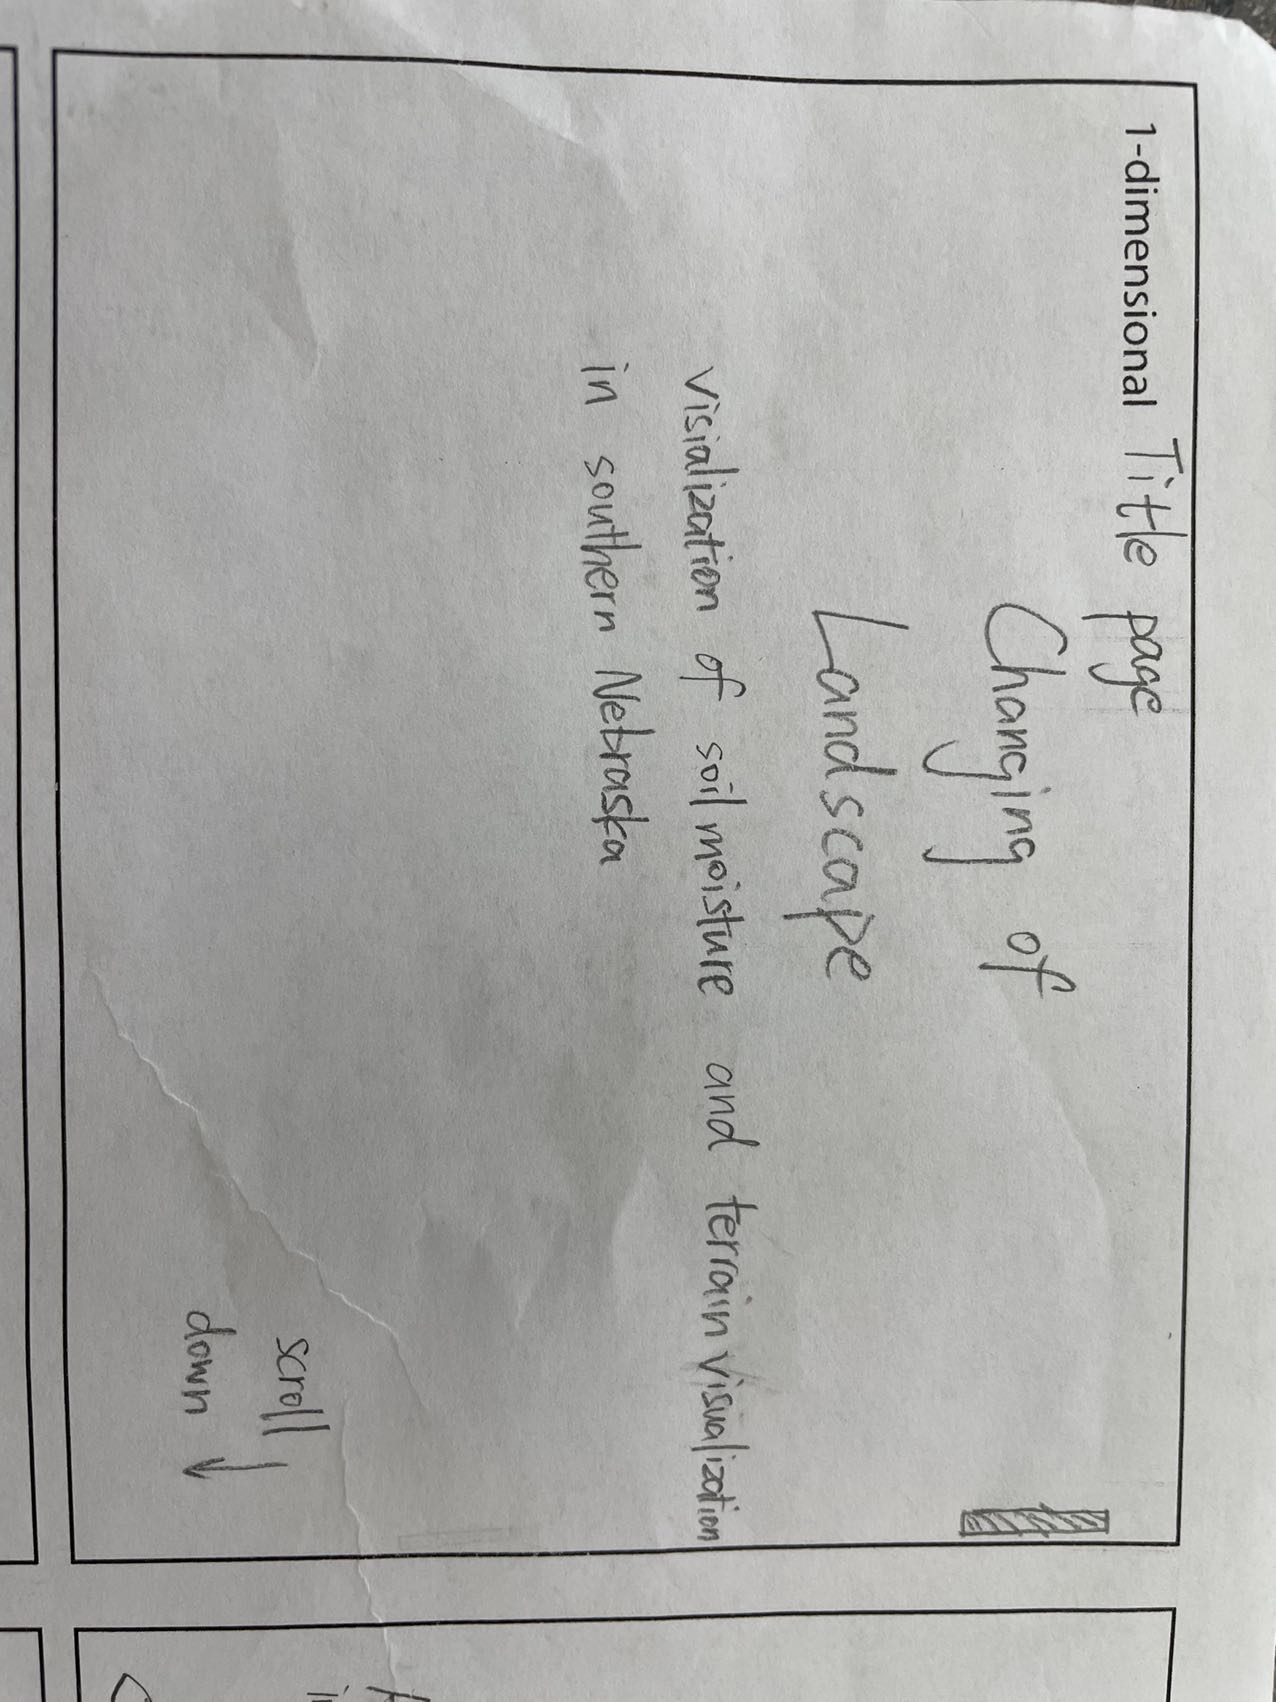 1-dimensional Title page
Changing of
Landscape
visialization of soil moisture and terrain visualization
in southern Nebraska
scroll
down